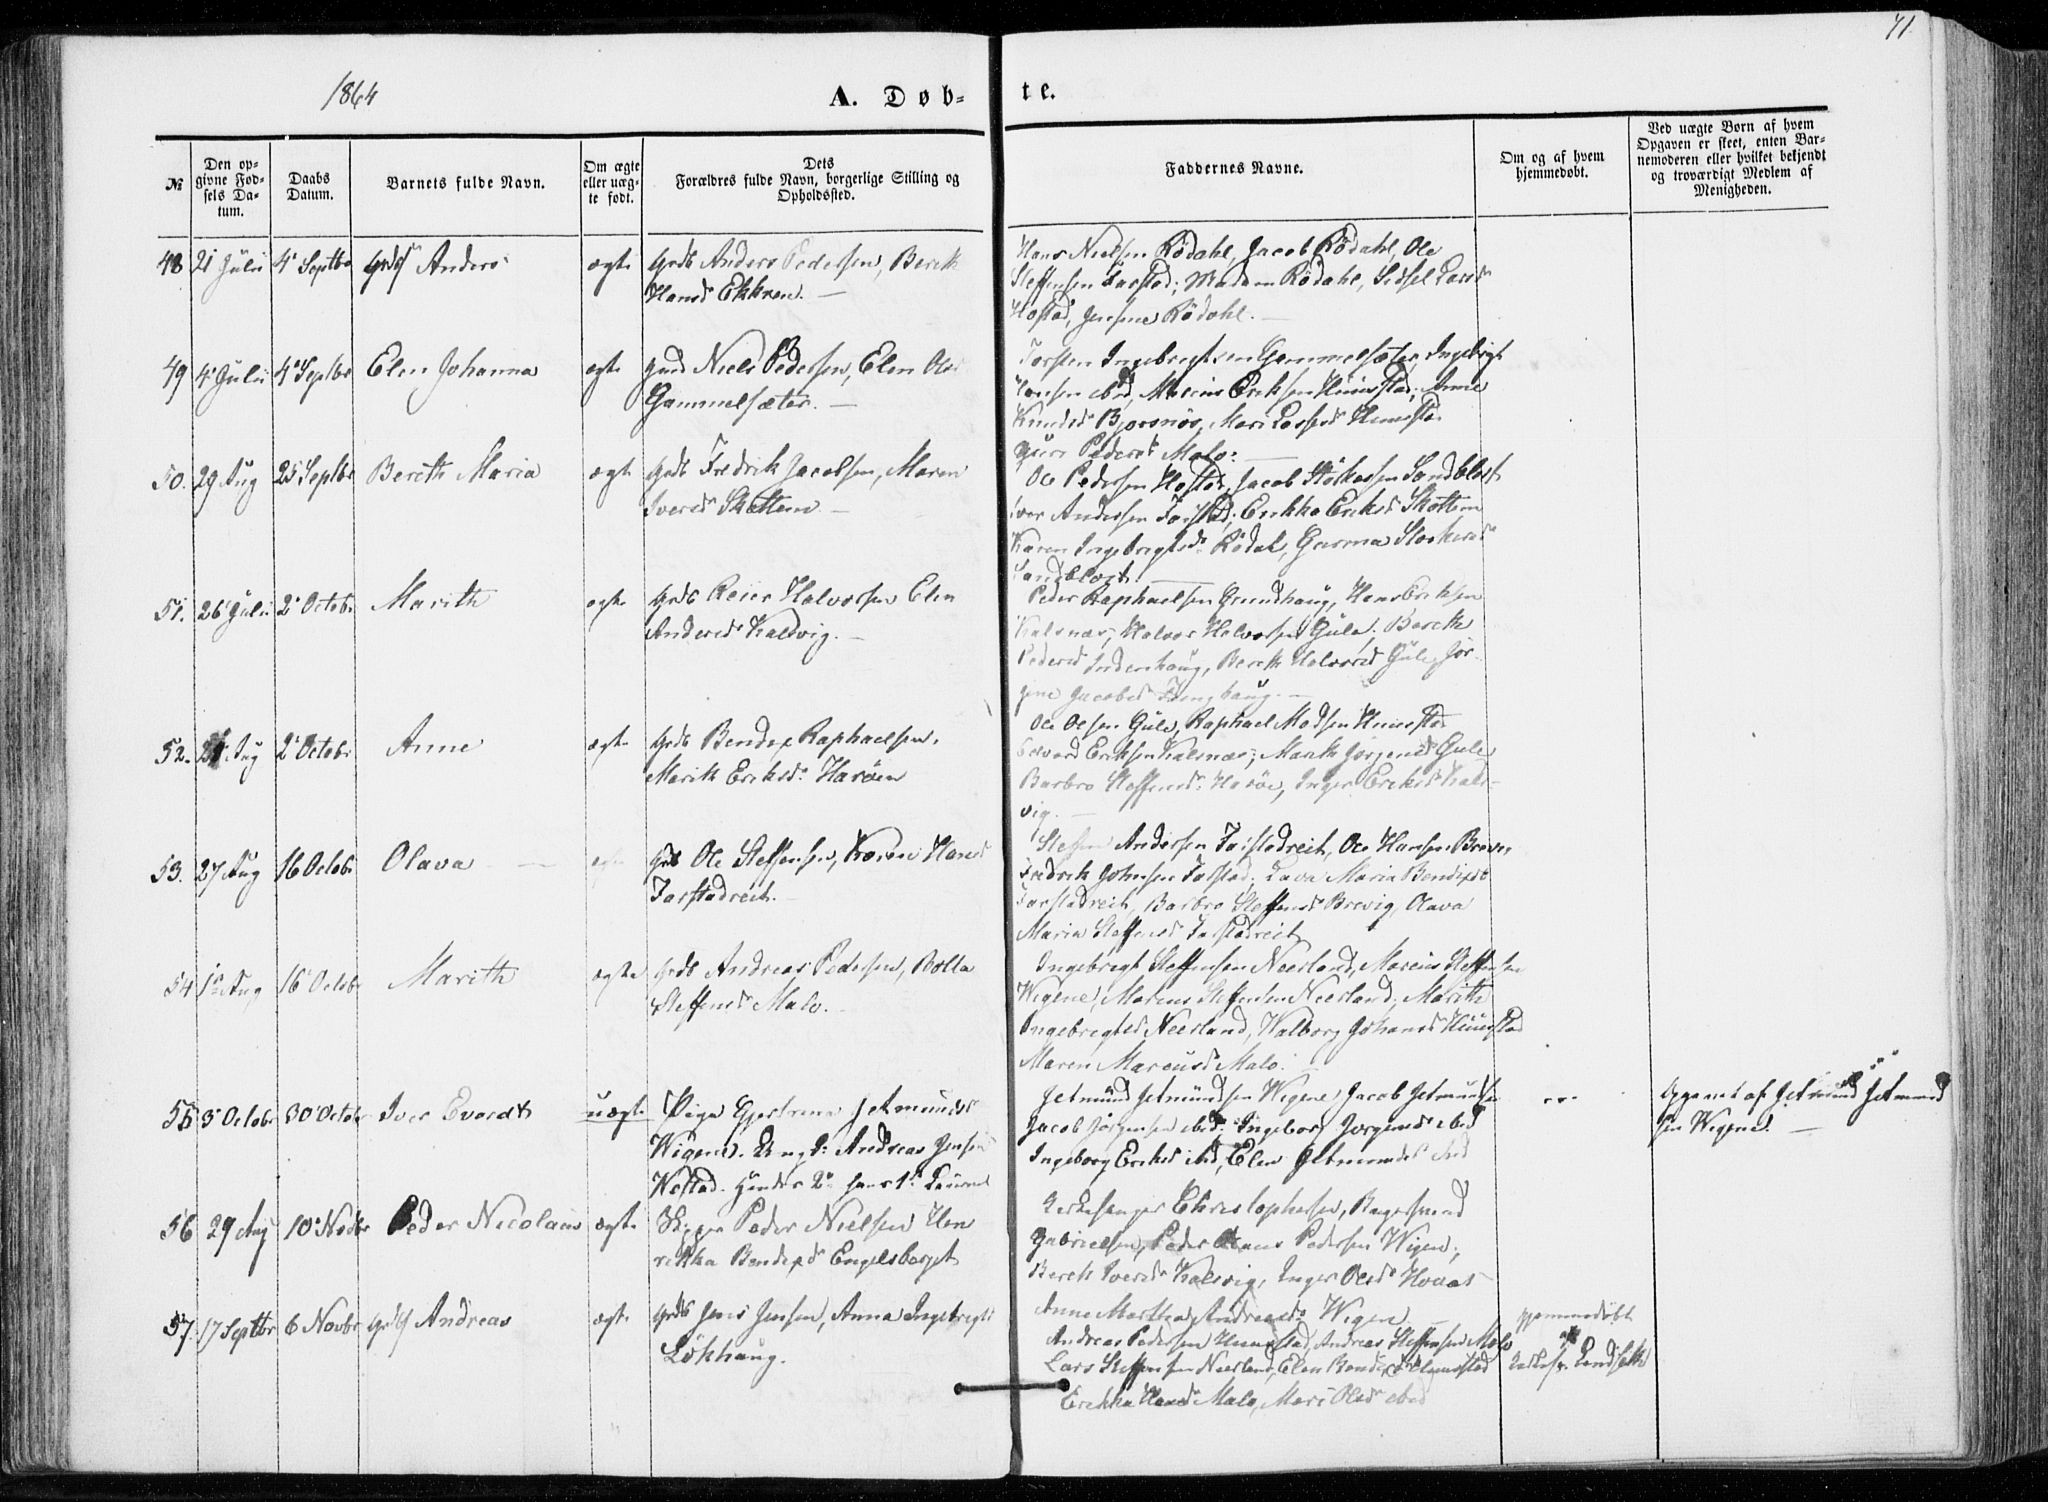 71
1864
A. Døb-
te.
№
Den opgivne Fødsels Datum.
Daabs Datum.
Barnets fulde Navn.
Om ægte eller uægte født.
Dets Forældres fulde Navn, borgerlige Stilling og Opholdssted.
Faddernes Navne.
Om og af hvem hjemmedøbt.
Ved uægte Børn af hvem Opgaven er skeet, enten Barnemoderen eller hvilket bekjendt og troværdigt Medlem af Menigheden.
48 21 Juli 4 Septbr Anders ægte Grdb Anders Pedersen, Bereth
Hansd Ekkren.
Hans Nielsen Rödahl, Jacob Rödahl, Ole
Steffensen Farstad; Madam Rödahl, Sidsel Larsd
Hostad, Jensine Rödahl.
49 4 Juli 4 Septbr Elen Johanna ægte Niels Pedersen, Elen Olsd
Gammelsæter.
Torsten Ingebrigtsen Gammelsæter, Ingebrigt
Hansen ibid, Marius Eriksen Huustad; Anne
Knudsd Bjørnnös, Mari Lassesd Huustad
Guri Pedersd Malo.
50. 29 Aug 25 Septbr Bereth Maria ægte Grdb Fredrik Jacobsen, Maren
Iversd Skotten
Ole Pedersen Hostad, Jacob Slörkersen Sandblost
Iver Andersen Farstad; Erikka Eriksd Skotten
Karen Ingebrigtsd Rödal, Gurina Slorkersd
Sandblost.
51. 26 Juli 2 Octobr Marith ægte Grdb Reier Halvorsen Elen
Andersd Kalsvig.
Peder Raphaelsen Grundhaug, Hans Eriksen
Kalsnæs, Halvor Halvorsen Gule; Bereth
Pedersd Indrehaug, Bereth Halvorsd Gule, Jör-
gine Jacobsd
52. Aug 2 Octobr Anne ægte Grdb Bendix Raphaelsen,
Marith Eriksd. Haröen
Ole Olsen Gule, Raphael Madsen Huustad
Edvard Eriksen Kalsnæs; Marith Jörgensd Gule
Barbro Steffensd Haröe, Inger Eriksd Kals-
vig.
53. 27 Aug 16 Octobr Olava Grdb Ole Steffensen, Karen Hansd
Farstadreit.
Steffen Andersen Farstadreit, Ole Hansen
Fredrik Johnsen Farstad; Lava Maria Bendixd
Farstadreit, Barbro Steffensd Brevig, Olava
Maria Steffensd Farstadreit
54 Aug 16 Octobr Marith ægte Grdb Andreas Pedersen, Bolla
Steffensd Malo.
Ingebrigt Steffensen Neerland, Marius Steffensen
Wigene, Marius Steffensen Neerland; Marith
Ingebrigtsd Neerland, Walborg Johansd Huustad
Maren Mariusd Malo.
55 3 Octobr 30 Octobr Iver Evardt uægte Pige Gjertrine Jetmundsd
Wigene. Ungk. Andreas Jensen
Westad. Hendes 2 hans 1
Jetmund Jetmundsen Wigene Jacob Jetmundsen
Jacob Jörgensen ibid; Ingeborg Jörgensd ibid
Ingeborg Eriksd ibid, Elen Jetmundsd ibid
Opgivet af Jetmund Jetmund
sen Wigene.
56 29 Aug 10 Novbr Peder Nicolaus ægte Peder Nielsen Hen
rikka Bendixd Engelsberget
Kirkesanger Christophersen,
Gabrielsen, Peder Claus Pedersen Wigen;
Bereth Iversd Kalsvig, Inger Olsd Hovaas
Anne Martha Andreasd Wigene
57. 17 Septbr 6 Novbr Andreas ægte Grdb Jens Jensen, Anna Ingebrigtsd
Lökhaug.
Andreas Pedersen Huustad, Andreas Steffensen Malo
Lars Steffensen Neerland, Elen Bendixd Huustad
Erikka Hansd Malo, Mari Olsd ibid
hjemmedöbt
af
Landsæth